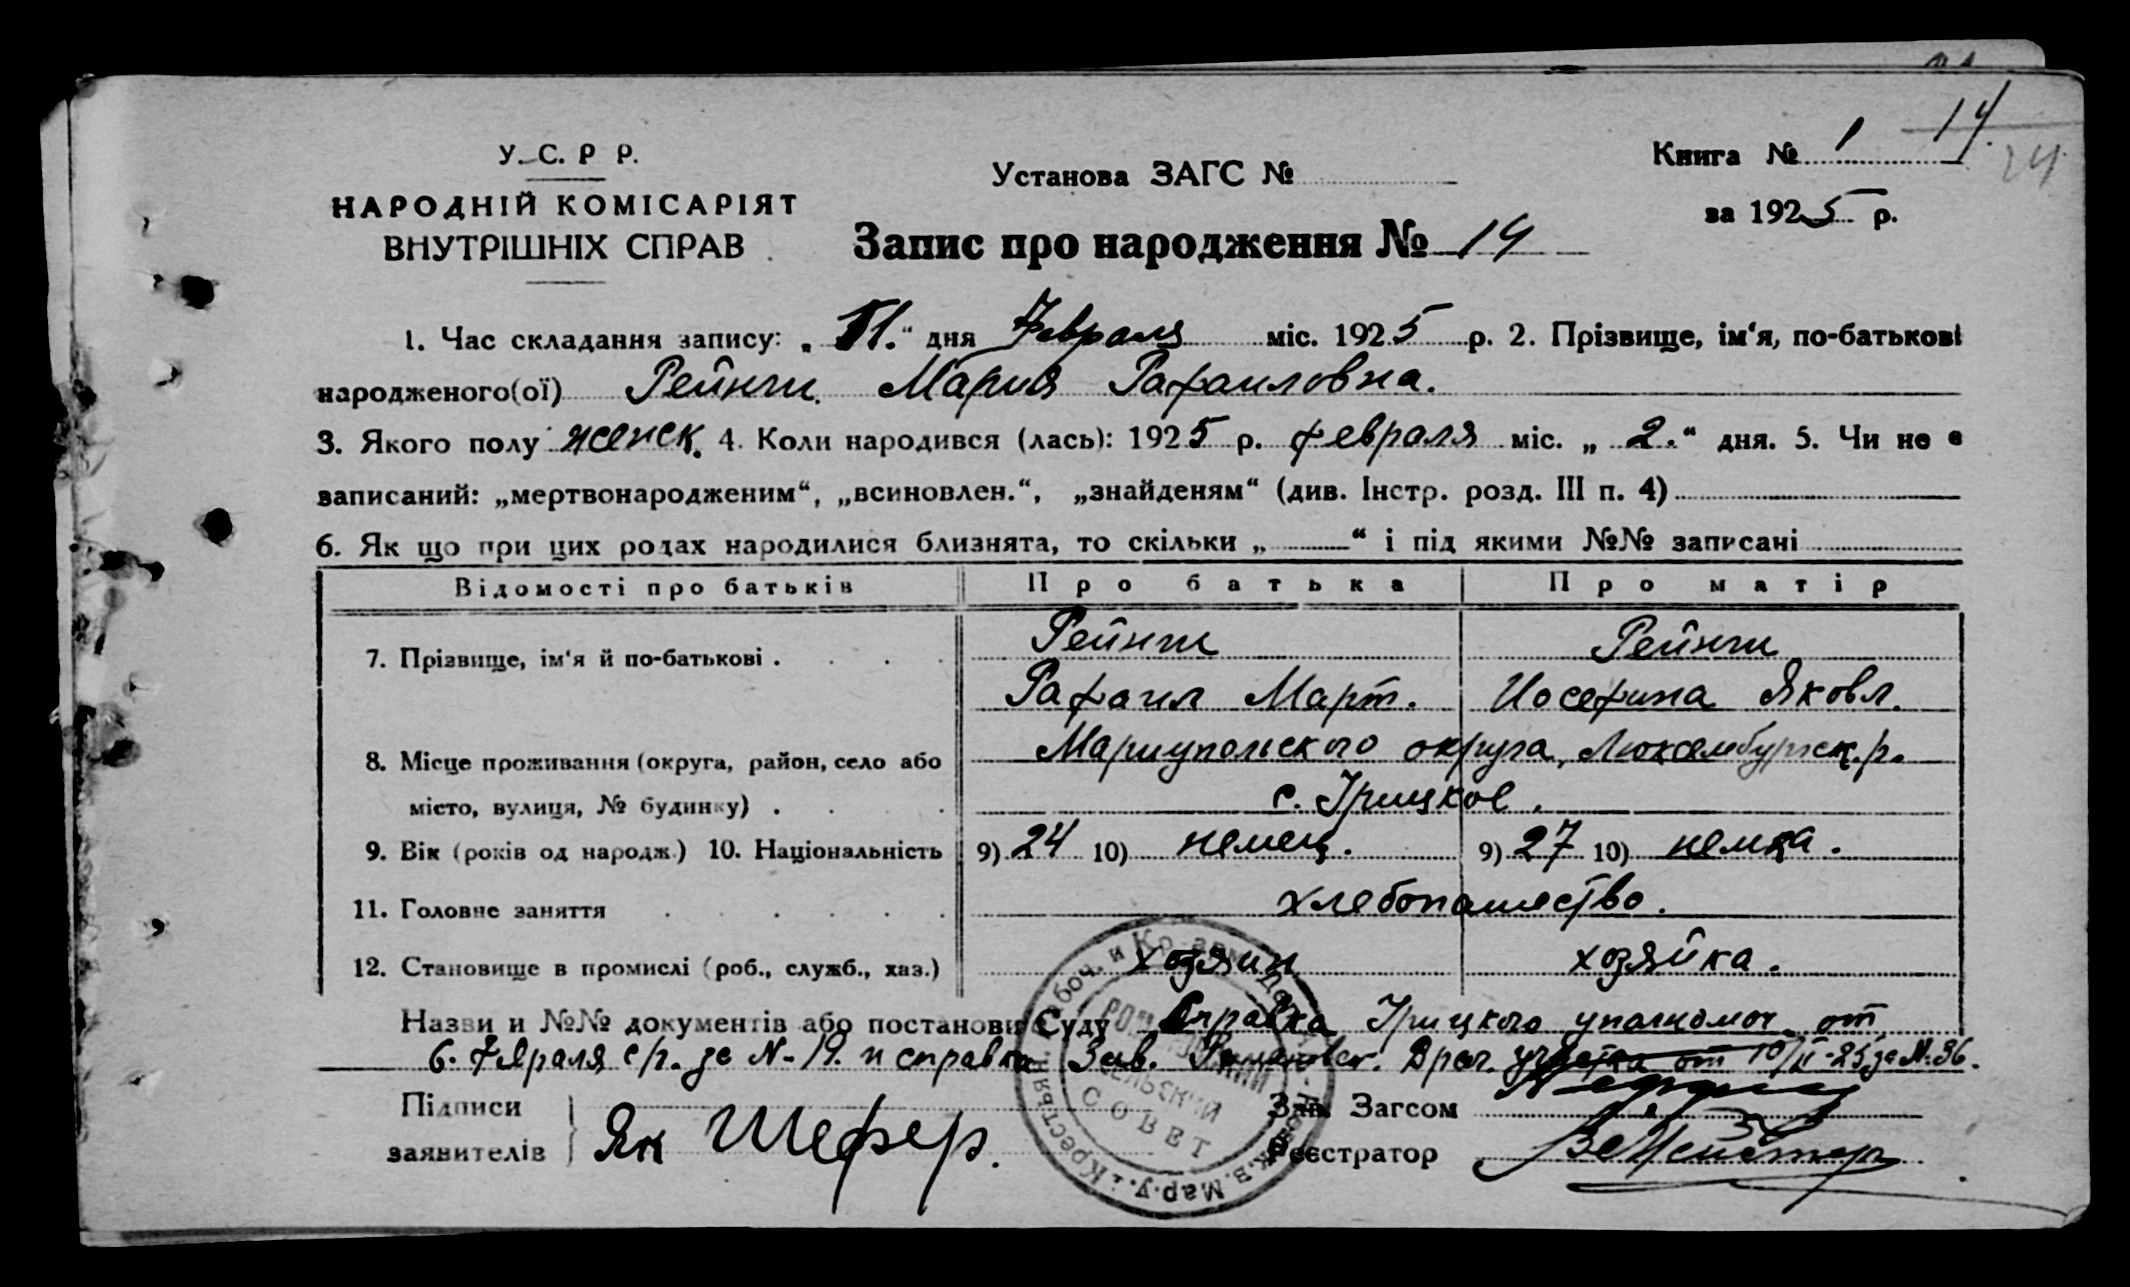 14
24
У. С. Р Р.
НАРОДНІЙ КОМІСАРІЯТ
ВНУТРІШНІХ СПРАВ
Установа ЗАГС №
Книга № 1
за 1925 р.
Запис про народження № 14
1. Час складання запису: „ 11.“ дня Февраля міс. 1925 р. 2. Прізвище, ім‘я, по-батькові
народженого(ої) Рейнгш Мария Рафаиловна.
3. Якого полу женск. 4. Коли народився (лась): 1925 р. февраля міс. „ 2.“ дня. 5. Чи не є
записаний: „мертвонародженим“, „всиновлен.“, „знайденям“ (див. Інстр. розд. III п. 4)
6. Як що при цих родах народилися близнята, то скільки „ “ і під якими №№ записані
Відомості про батьків Про батька Про матір
7. Прізвище, ім‘я й по-батькові . Рейнгш Рейнгш
Рафаил Март. Иосефина Яковл.
8. Місце проживання (округа, район, село або Мариупольского округа, Люксембургск. р.
місто, вулиця, № будинку) . с. Грицков.
9. Вік (років од народж.) 10. Національність 9) 24 10) немец. 9) 27 10) немка.
11. Головне заняття хлебопашество.
12. Становище в промислі (роб., служб., хаз.) хозяин хозяйка.
Назви и №№ документів або постанови Суду Справка Грицкого уполномоч. от
6. Февраля с/г. за N-19. и справка Зав. Врач. участка от 10/II-25 за N. 36.
Підписи
заявителів
Як Шефер.
Зав. Загсом
Реєстратор
СЕЛЬСКИЙ
СОВЕТ